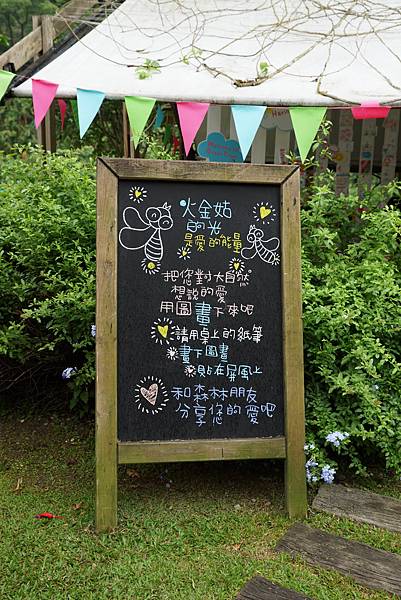 火金姑
的光
是愛的能量
把您對大自然
想說的愛
用圖畫下來吧
請用桌上的紙筆
畫下圖畫
貼在屏風上
和森林朋友
分享您的愛吧